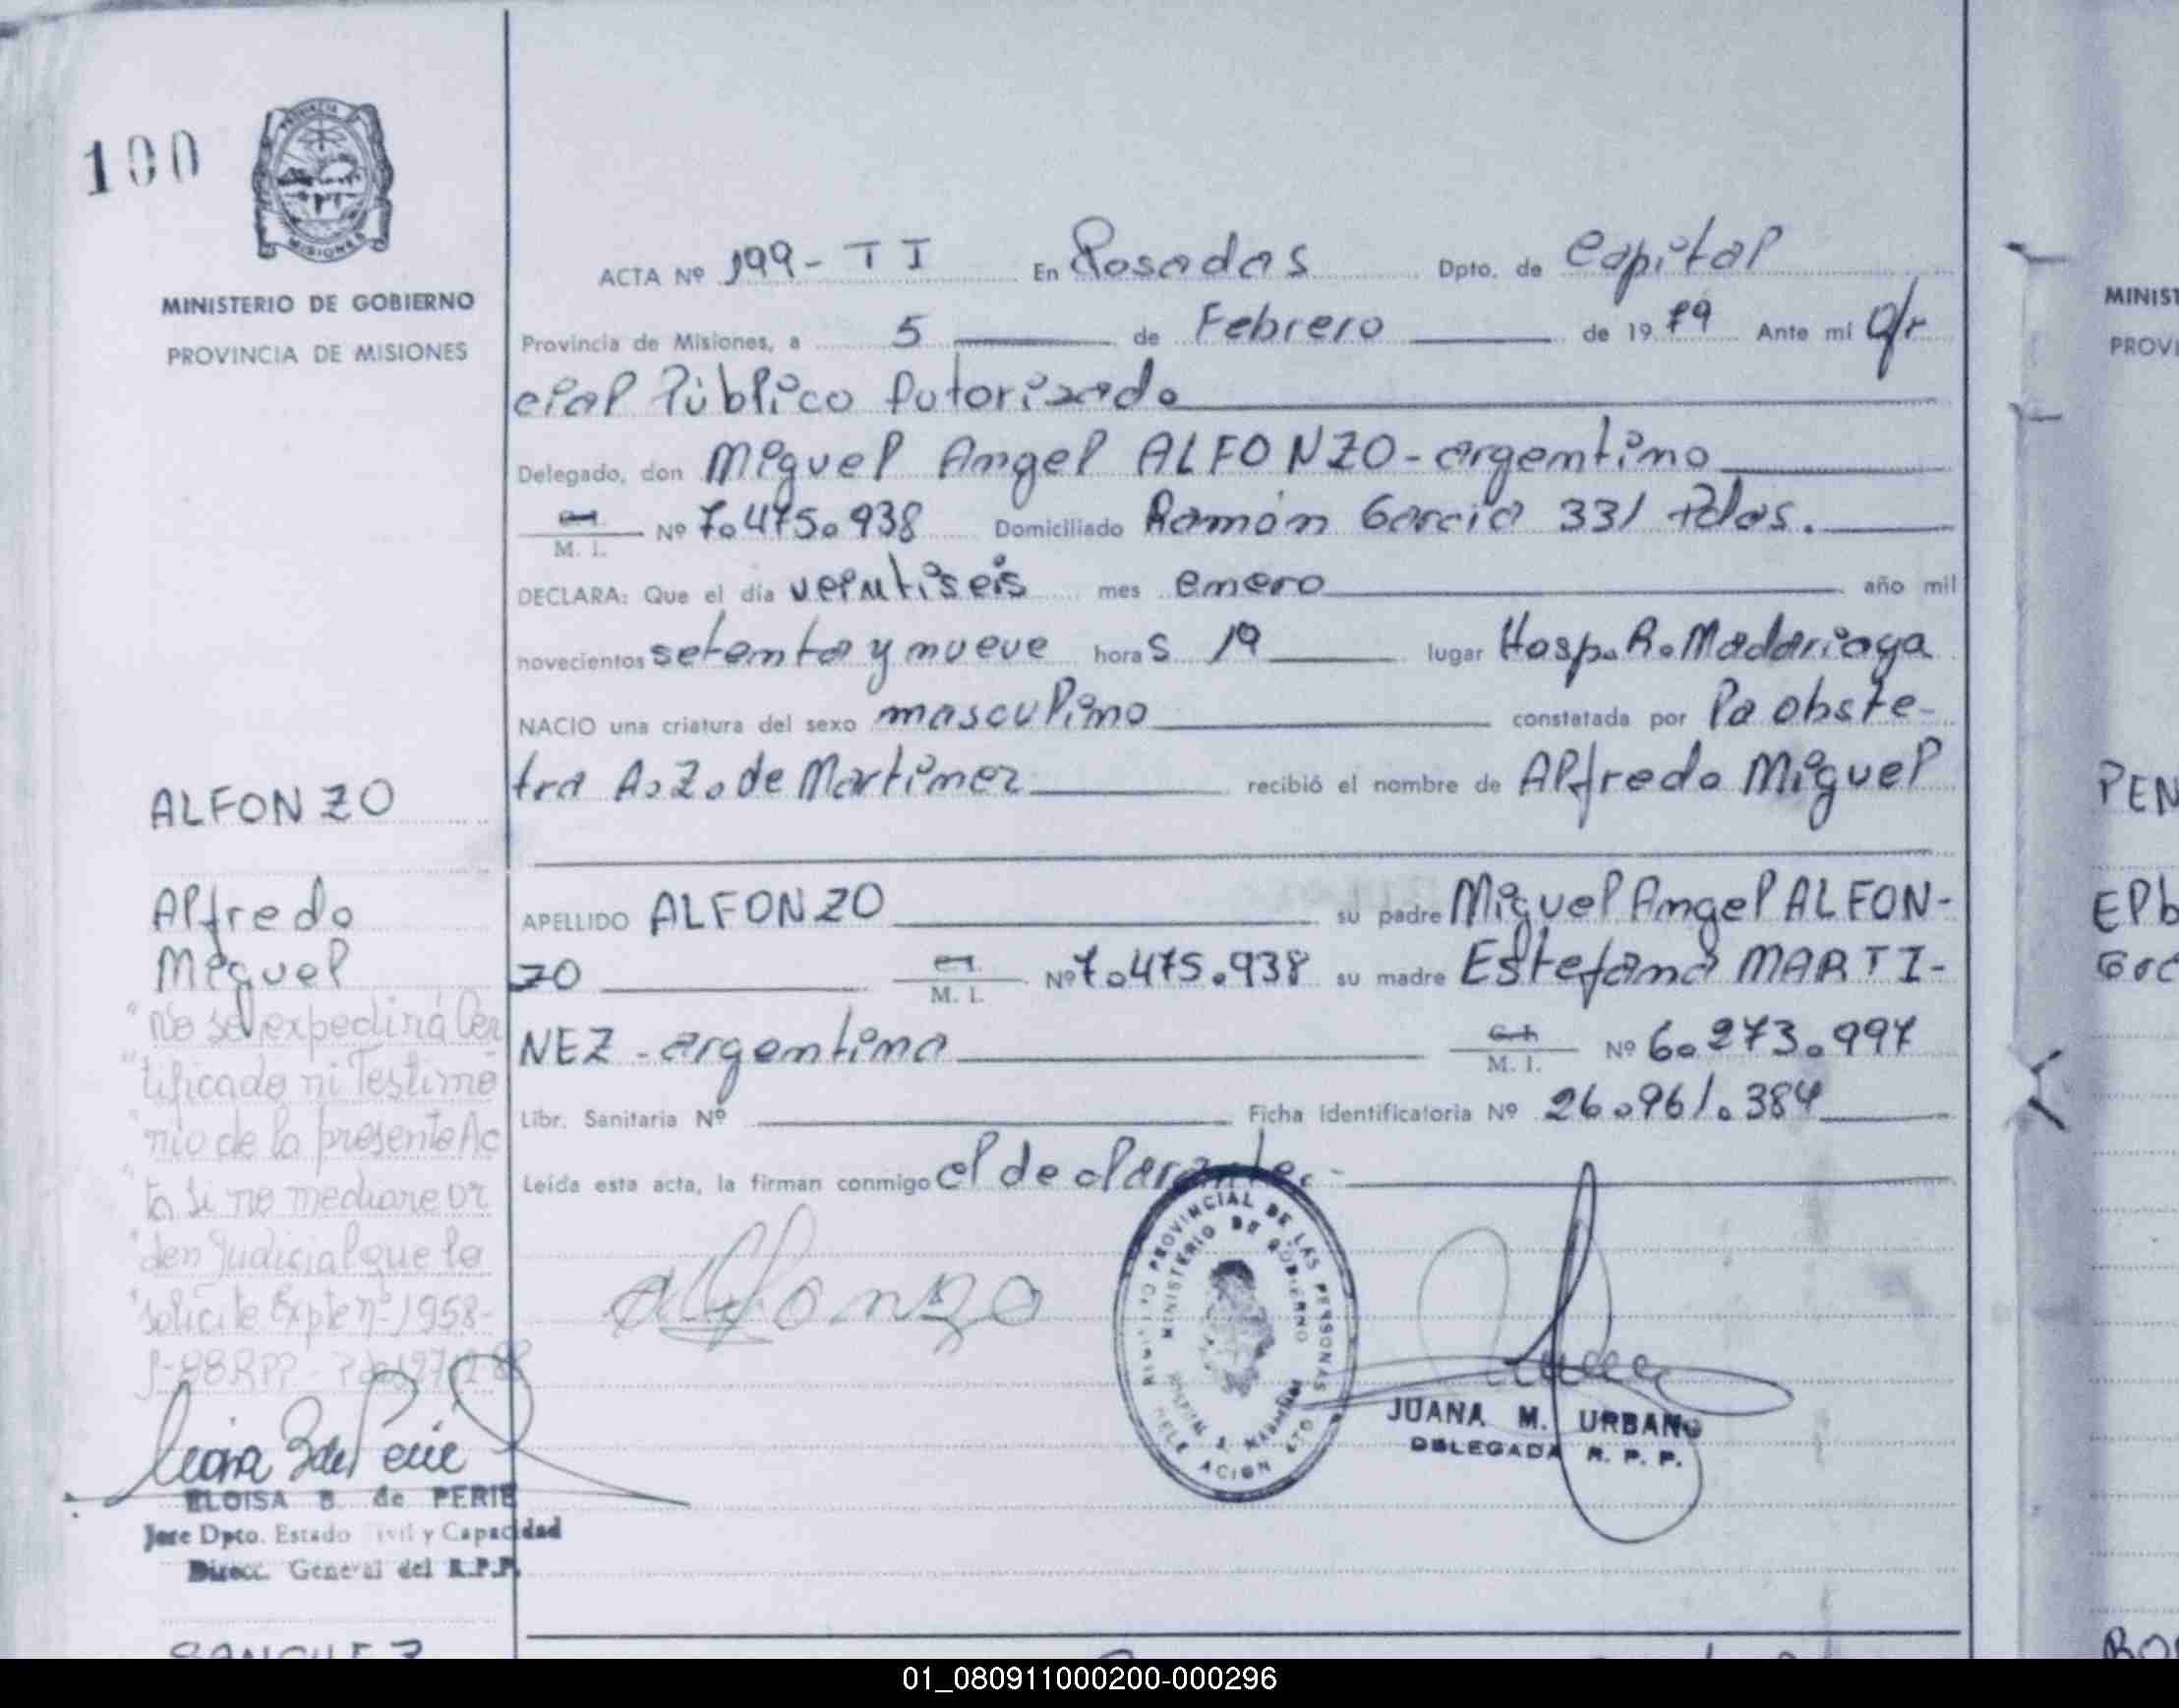 100
PROVINCIA
MISIONES
MINISTERIO DE GOBIERNO
PROVINCIA DE MISIONES
ACTA Nº 199- TI En Posadas Dpto. de Capital
Provincia de Misiones, a 5 de Febrero de 1979 Ante mi Ofi
cial Público Autorizado
Delegado, don Miguel Angel ALFONZO-argentino
M. I. Nº 7.475.938 Domiciliado Ramón Garcia 331 Pdas.
DECLARA: Que el día veintiseis mes enero año mil
novecientos setenta y nueve horas 19 lugar Hosp.R.Madariaga
NACIO una criatura del sexo masculino constatada por la obste-
tra A.Z.de Martinez recibió el nombre de Alfredo Miguel
APELLIDO ALFONZO su padre Miguel Angel ALFON-
ZO M. I. Nº 7.475.938 su madre Estefana MARTI-
NEZ - argentina M. I. Nº 6.273.997
Libr. Sanitaria Nº Ficha Identificatoria Nº 26.961.384
Leída esta acta, la firman conmigo el declarante.-
Alfonzo
PROVINCIAL DE LAS PERSONAS
MINISTERIO DE GOBIERNO
JUANA M. URBANO
DELEGADA R. P. P.
ALFONZO
Alfredo
Miguel
"No se expedirá Cer
"tificado ni Testimo
"nio de la presente Ac
"ta si no mediare or
"den Judicial que lo
"solicite Expte nº 1958-
ELOISA B. de PERIE
Jefe Dpto. Estado Civil y Capacidad
Direcc. General del R.P.P.
SANCHEZ
MINIST
PROVI
PEN
01_080911000200-000296